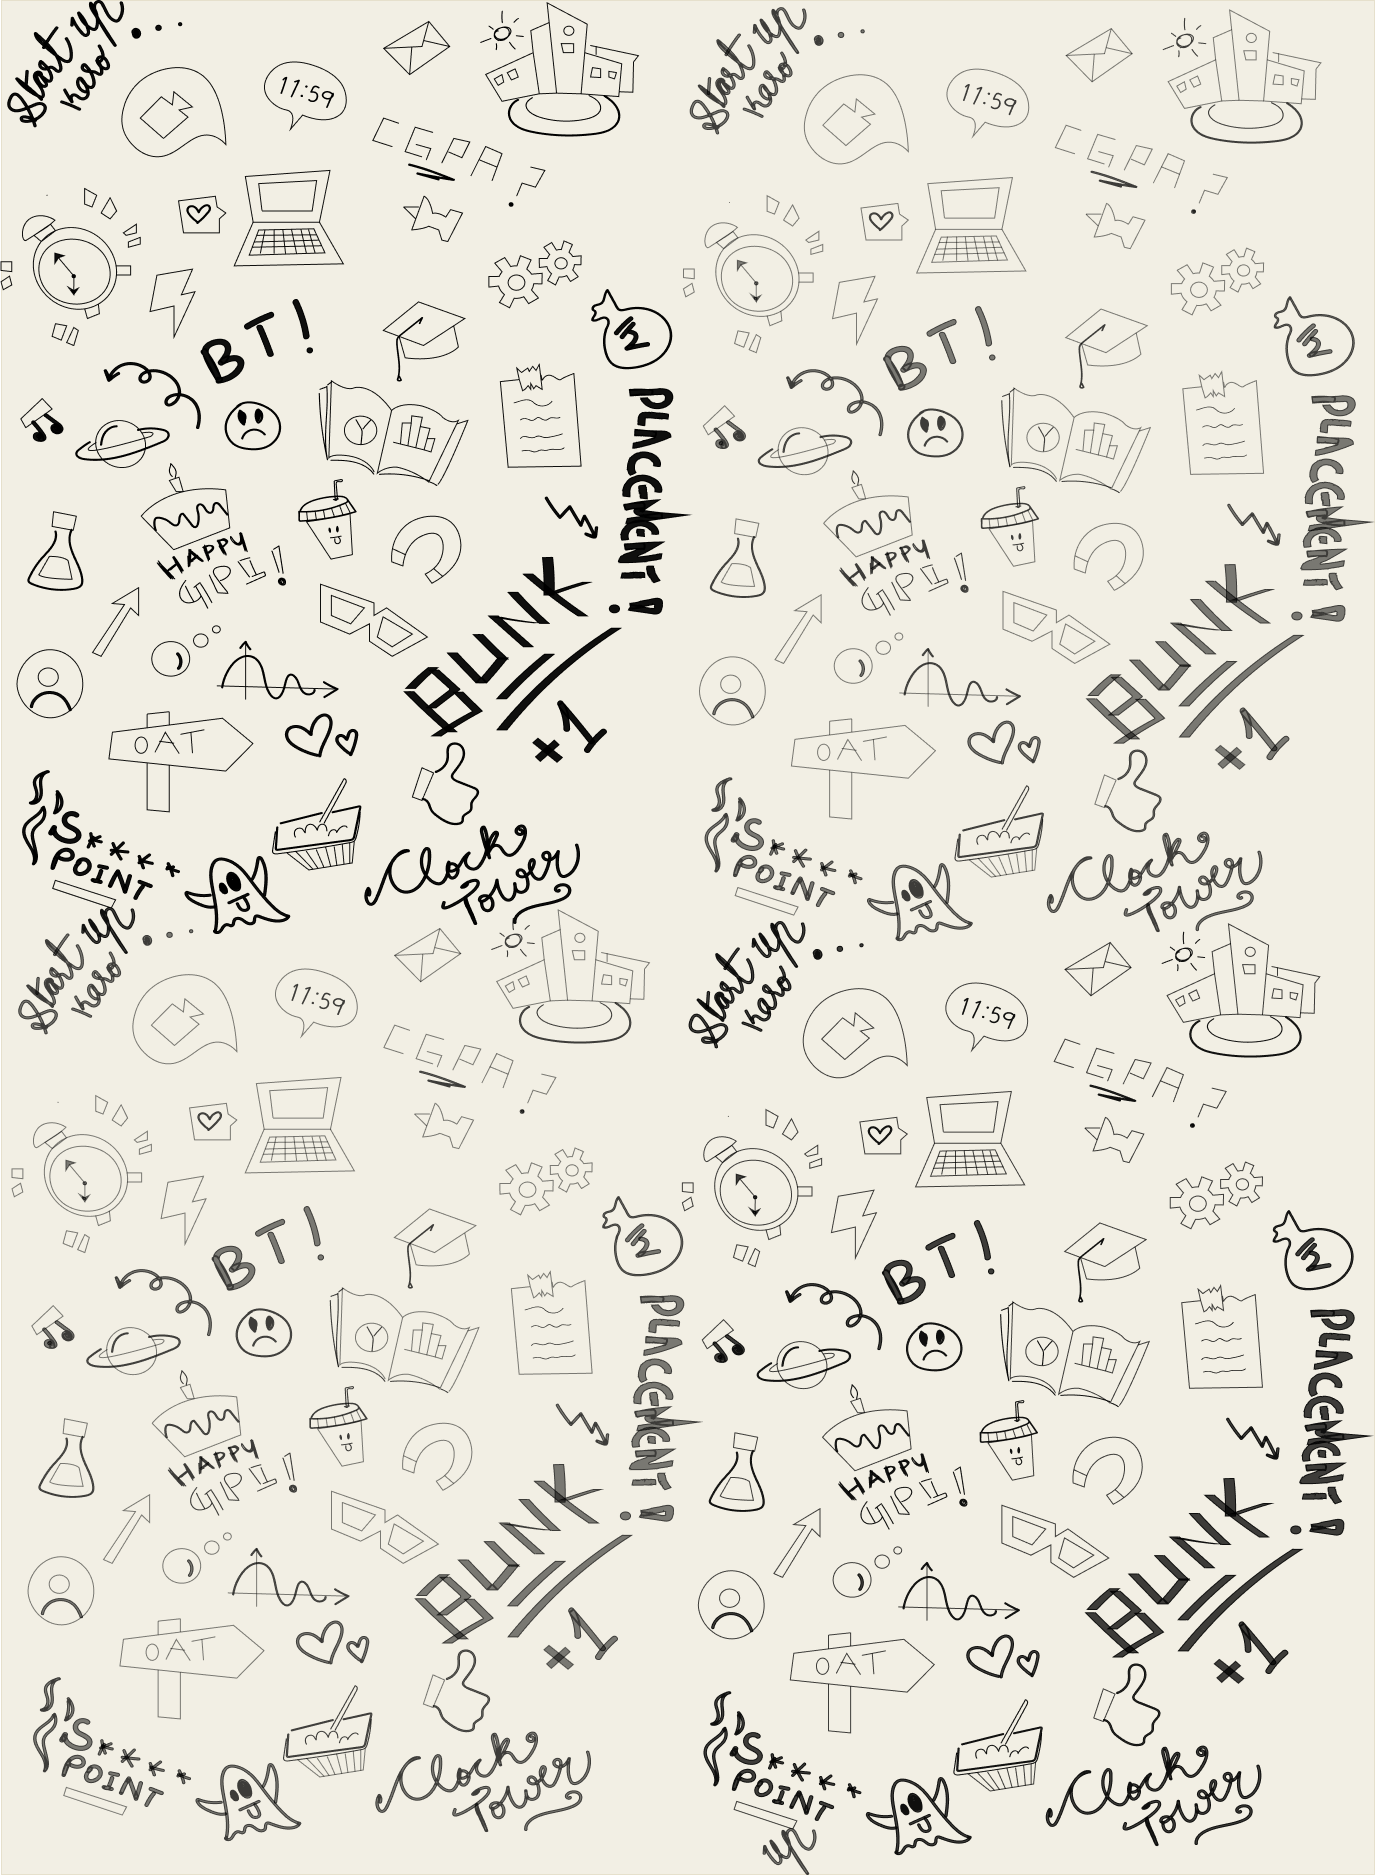 Start up
karo! . . .
11:59
CGPA ?
BT!
PLACEMENT!
HAPPY
GPI!
BUNK
+1
OAT
S****
POINT
Clock
Tower
Start up
karo! . . .
11:59
CGPA ?
BT!
PLACEMENT!
HAPPY
GPI!
BUNK
+1
OAT
S****
POINT
Clock
Tower
Start up
karo! . . .
11:59
CGPA ?
BT!
PLACEMENT!
HAPPY
GPI!
BUNK
+1
OAT
S****
POINT
Clock
Tower
Start up
karo! . . .
11:59
CGPA ?
BT!
PLACEMENT!
HAPPY
GPI!
BUNK
+1
OAT
S****
POINT
Clock
Tower
up